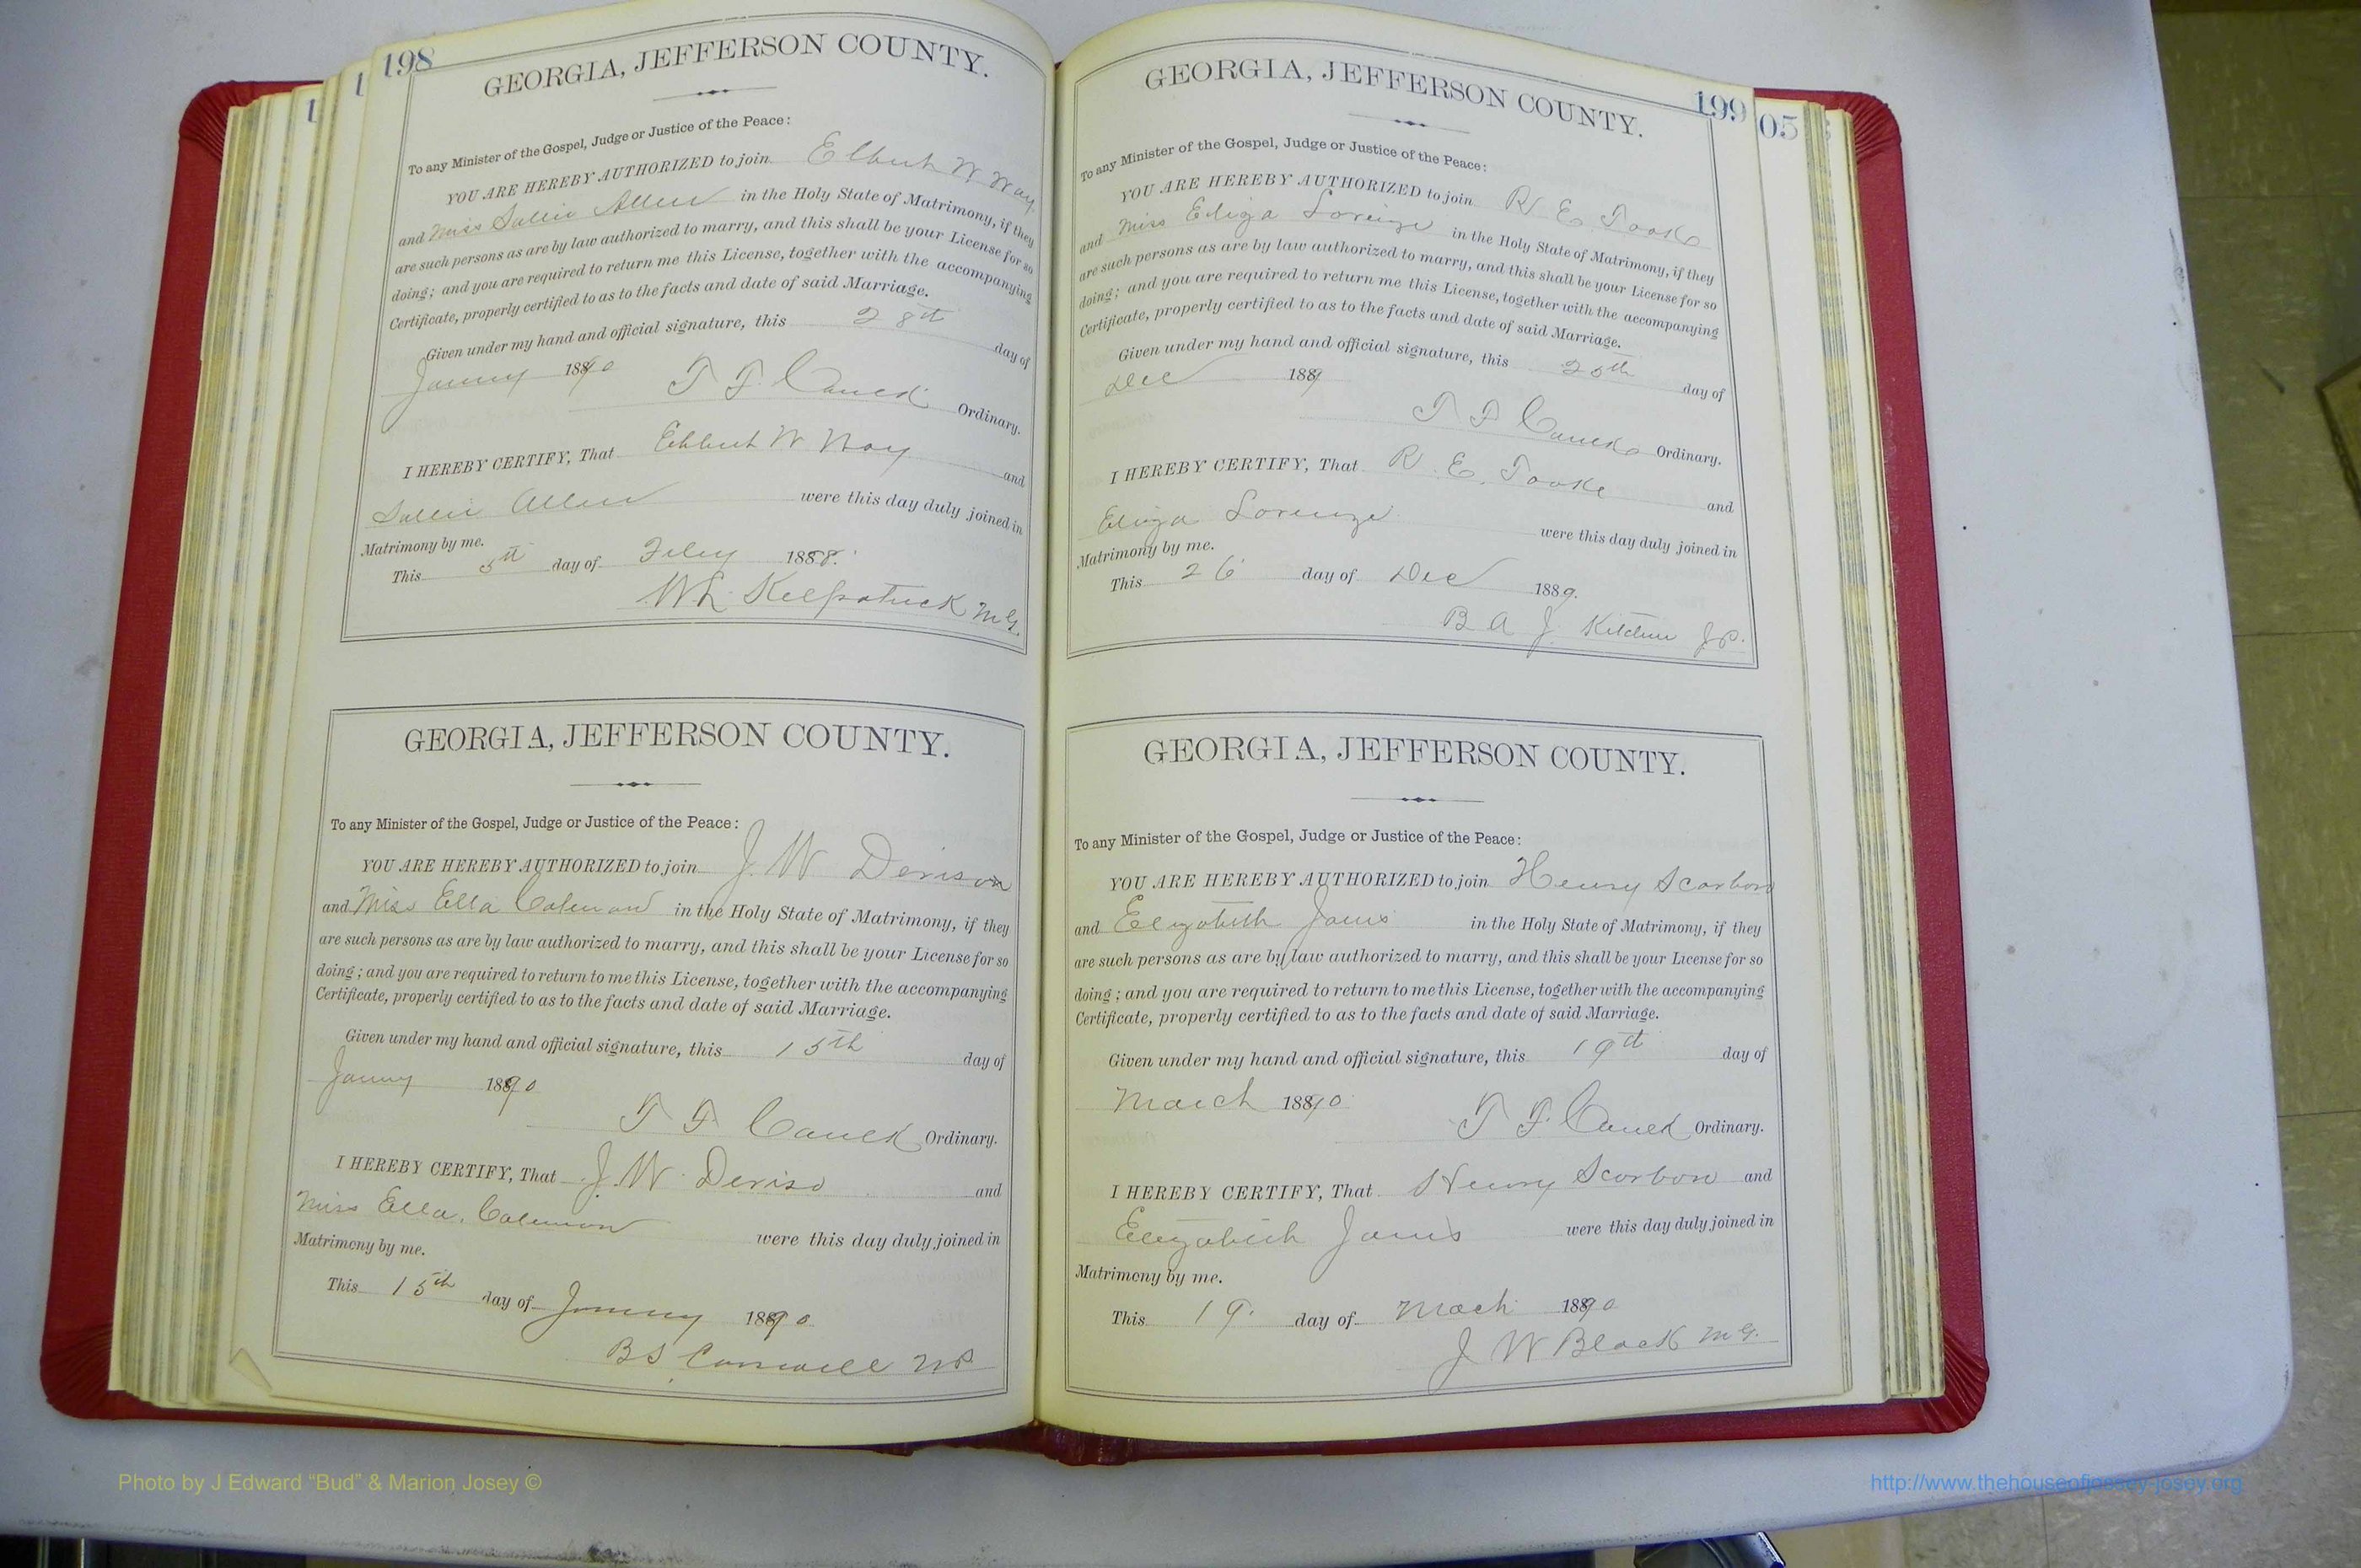 198
GEORGIA, JEFFERSON COUNTY.
To any Minister of the Gospel, Judge or Justice of the Peace:
YOU ARE HEREBY AUTHORIZED to join Elbert W Way
and Miss Sallie Allen in the Holy State of Matrimony, if they
are such persons as are by law authorized to marry, and this shall be your License for so
doing; and you are required to return me this License, together with the accompanying
Certificate, properly certified to as to the facts and date of said Marriage.
Given under my hand and official signature, this 28th day of
1890
T F Ordinary.
I HEREBY CERTIFY, That W Way and
Sallie Allen were this day duly joined in
Matrimony by me.
This 5th day of Feby 1888.
M.G.
GEORGIA, JEFFERSON COUNTY.
To any Minister of the Gospel, Judge or Justice of the Peace:
YOU ARE HEREBY AUTHORIZED to join J. W Denison
and Miss Ella Coleman in the Holy State of Matrimony, if they
are such persons as are by law authorized to marry, and this shall be your License for so
doing; and you are required to return to me this License, together with the accompanying
Certificate, properly certified to as to the facts and date of said Marriage.
Given under my hand and official signature, this 15th day of
1890
T F Ordinary.
I HEREBY CERTIFY, That J. W. Deniso and
Miss Ella Coleman were this day duly joined in
Matrimony by me.
This 15th day of 1890
B S
199
05
GEORGIA, JEFFERSON COUNTY.
To any Minister of the Gospel, Judge or Justice of the Peace:
YOU ARE HEREBY AUTHORIZED to join R E Tooke
and Miss Eliza in the Holy State of Matrimony, if they
are such persons as are by law authorized to marry, and this shall be your License for so
doing; and you are required to return me this License, together with the accompanying
Certificate, properly certified to as to the facts and date of said Marriage.
Given under my hand and official signature, this 25th day of
Dec 1889
T F Ordinary.
I HEREBY CERTIFY, That R. E. Tooke and
Eliza were this day duly joined in
Matrimony by me.
This 26 day of Dec 1889.
B A J J.P.
GEORGIA, JEFFERSON COUNTY.
To any Minister of the Gospel, Judge or Justice of the Peace:
YOU ARE HEREBY AUTHORIZED to join Henry Scarboro
and Elizabeth in the Holy State of Matrimony, if they
are such persons as are by law authorized to marry, and this shall be your License for so
doing; and you are required to return to me this License, together with the accompanying
Certificate, properly certified to as to the facts and date of said Marriage.
Given under my hand and official signature, this 19th day of
March 1890
T F. Ordinary.
I HEREBY CERTIFY, That Henry Scarboro and
Elizabeth were this day duly joined in
Matrimony by me.
This 19. day of Mach 1890
J W Black M.G.
Photo by J Edward “Bud” & Marion Josey ©
http://www.thehouseofjossey-josey.org